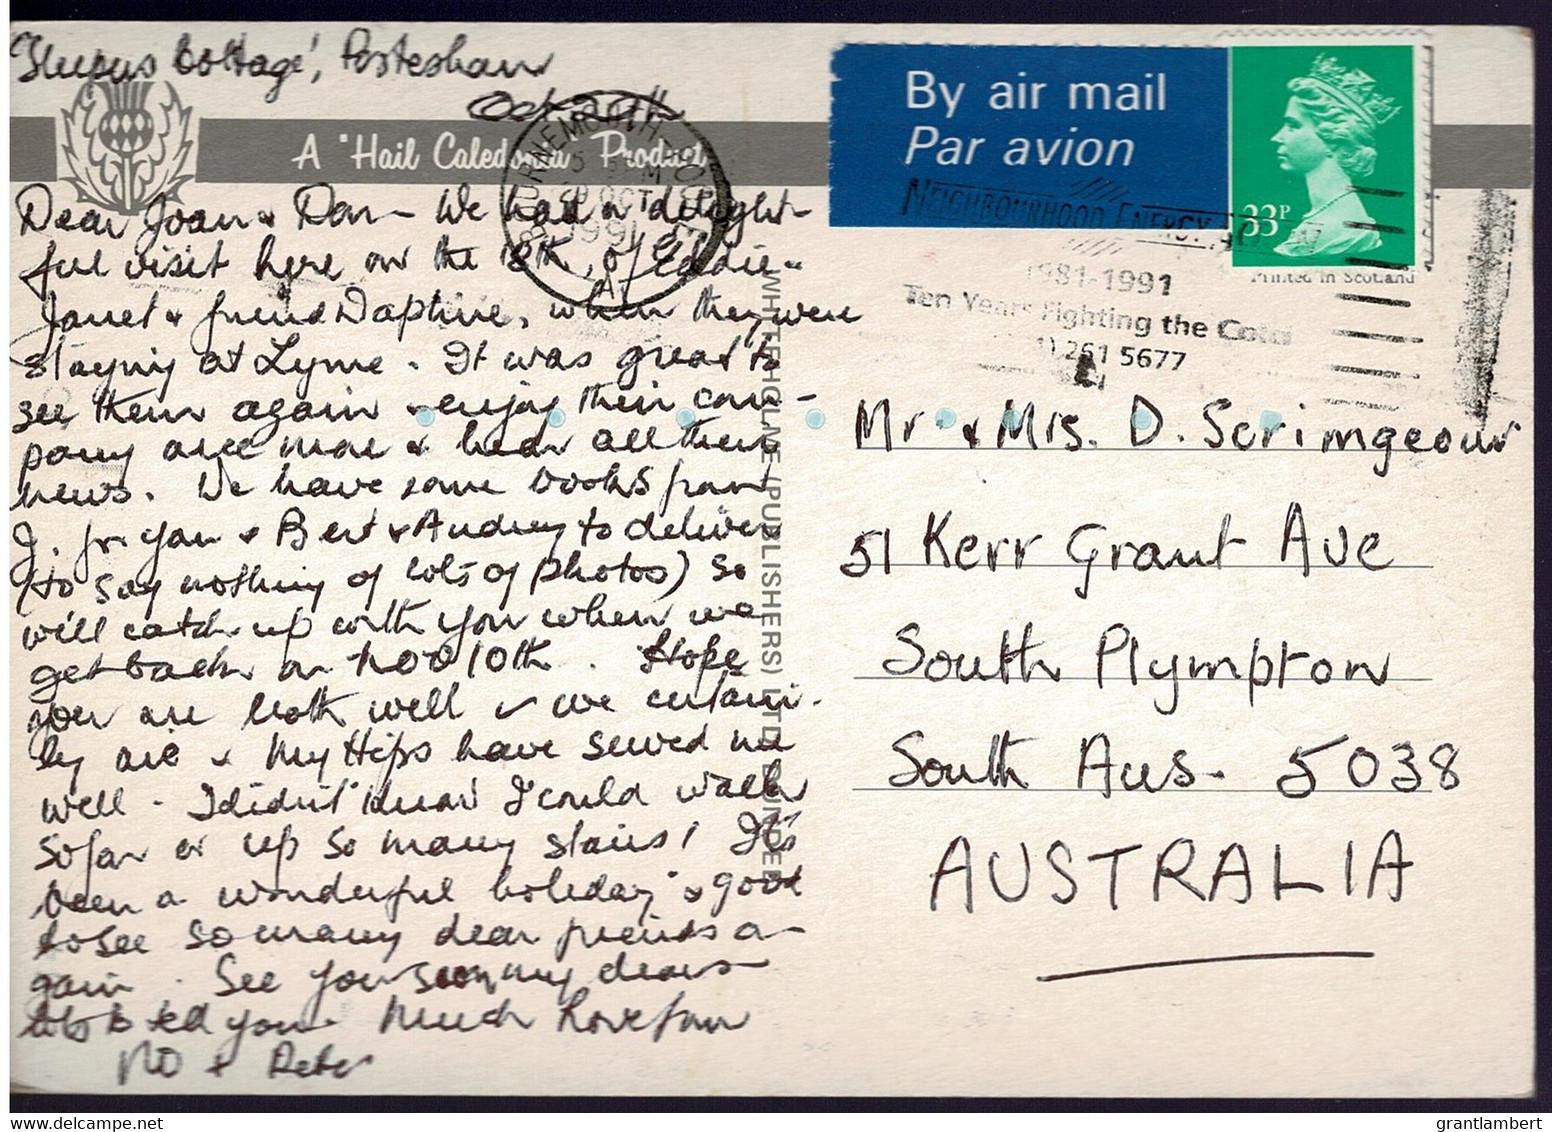 'Sleepers Cottage', Portesham
Oct
A "Hail Caledonia" Product
Dear Joan & Don – We had a delight-
ful visit here on the 18th, of Eddie –
Janet & friend Daphne, when they were
staying at Lyme. It was great to
see them again & enjoy their com-
pany once more & hear all their
news. We have some books from
J. for you & Bert & Audrey to deliver
(to say nothing of lots of photos) so
will catch up with you when we
get back on Nov 10th. Hope
you are both well & we certain-
ly are & my Hips have served me
well. I didn't know I could walk
so far or up so many stairs! It's
been a wonderful holiday & good
to see so many dear friends a-
gain. See you soon my dears –
lots to tell you. Much Love from
Mo & Peter
WHITEHOLME (PUBLISHERS) LTD DUNDEE
BOURNEMOUTH
OCT
1991
By air mail
Par avion
33P
Printed in Scotland
NEIGHBOURHOOD ENERGY ACTION
1981-1991
Ten Years Fighting the Cold
261 5677
Mr & Mrs. D. Scrimgeour
51 Kerr Grant Ave
South Plympton
South Aus. 5038
AUSTRALIA
grantlambert